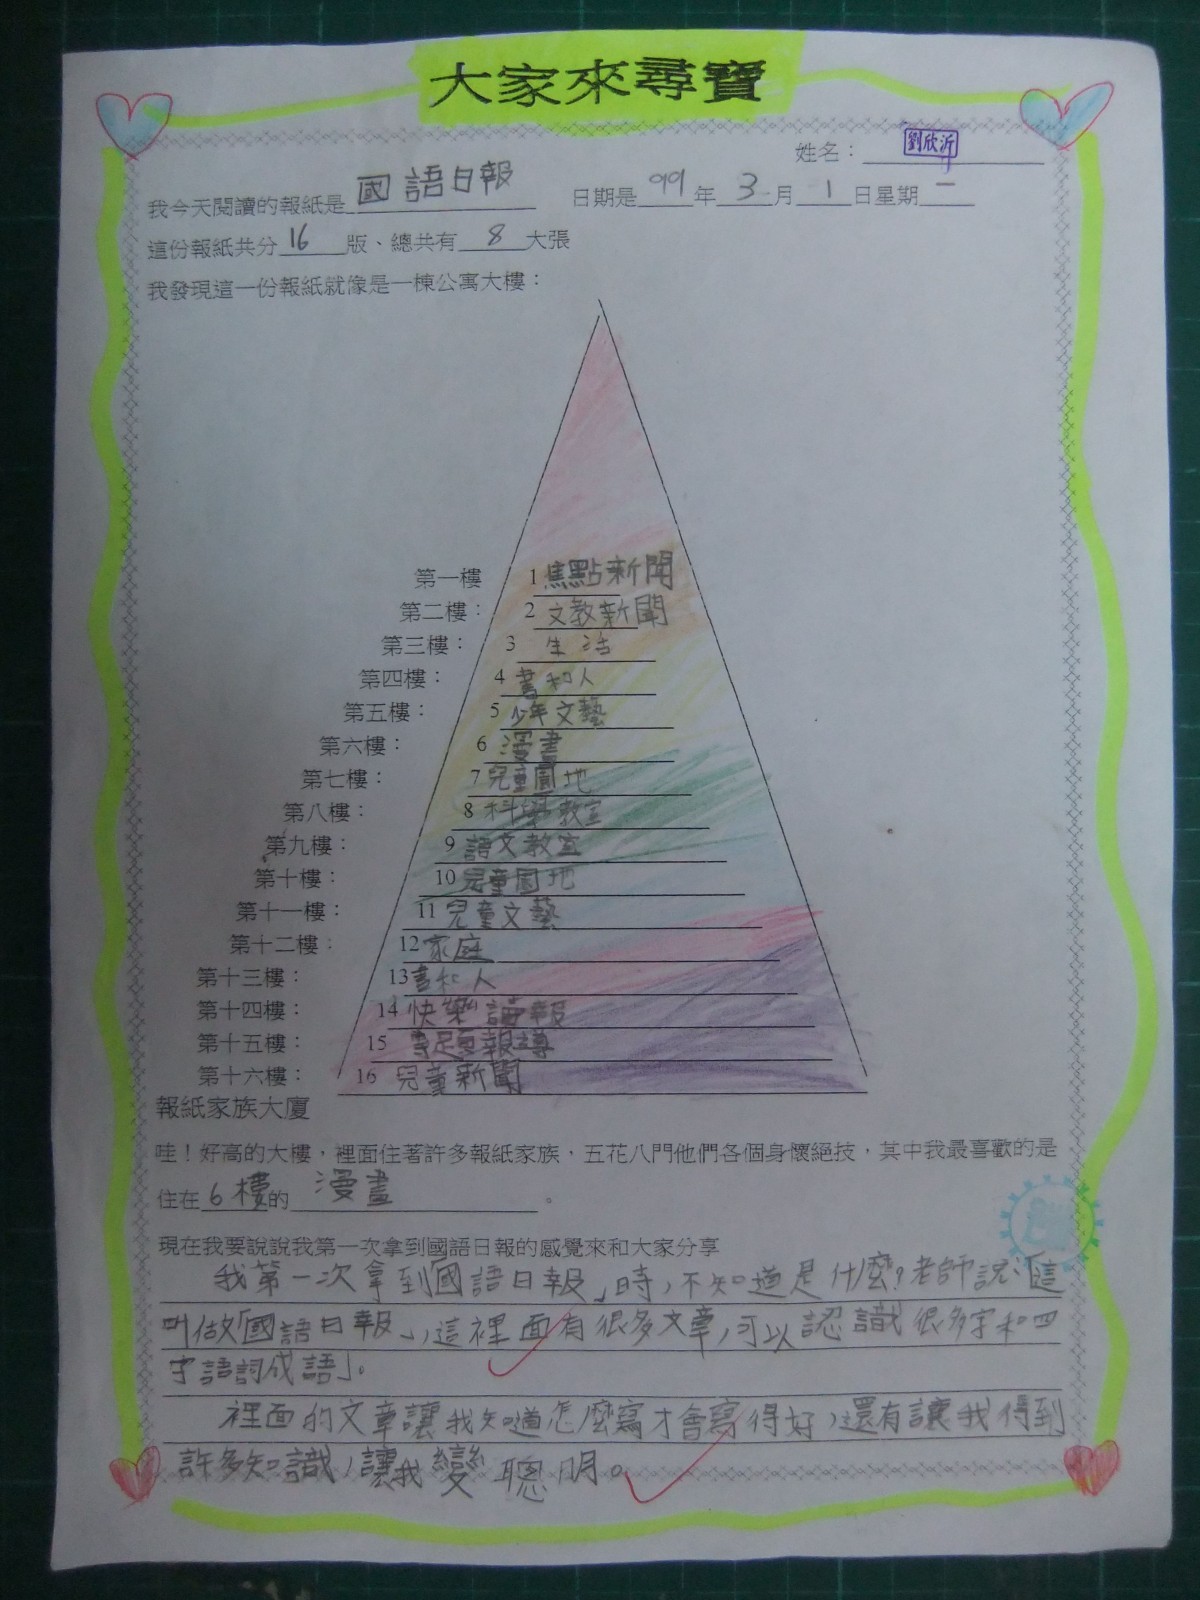 大家來尋寶
姓名：劉欣沂
我今天閱讀的報紙是國語日報 日期是99年3月1日星期一
這份報紙共分16版、總共有8大張
我發現這一份報紙就像是一棟公寓大樓：
第一樓 1焦點新聞
第二樓： 2文教新聞
第三樓： 3生活
第四樓： 4書和人
第五樓： 5少年文藝
第六樓： 6漫畫
第七樓： 7兒童園地
第八樓： 8科學教室
第九樓： 9語文教室
第十樓： 10兒童園地
第十一樓： 11兒童文藝
第十二樓： 12家庭
第十三樓： 13書和人
第十四樓： 14快樂讀報
第十五樓： 15專題報導
第十六樓： 16兒童新聞
報紙家族大廈
哇！好高的大樓，裡面住著許多報紙家族，五花八門他們各個身懷絕技，其中我最喜歡的是
住在6樓的漫畫。
現在我要說說我第一次拿到國語日報的感覺來和大家分享
我第一次拿到國語日報」時，不知道是什麼？老師說：「這
叫做「國語日報」，這裡面有很多文章，可以認識很多字和四
字語詞成語」。
裡面的文章讓我知道怎麼寫才會寫得好，還有讓我得到
許多知識，讓我變聰明。